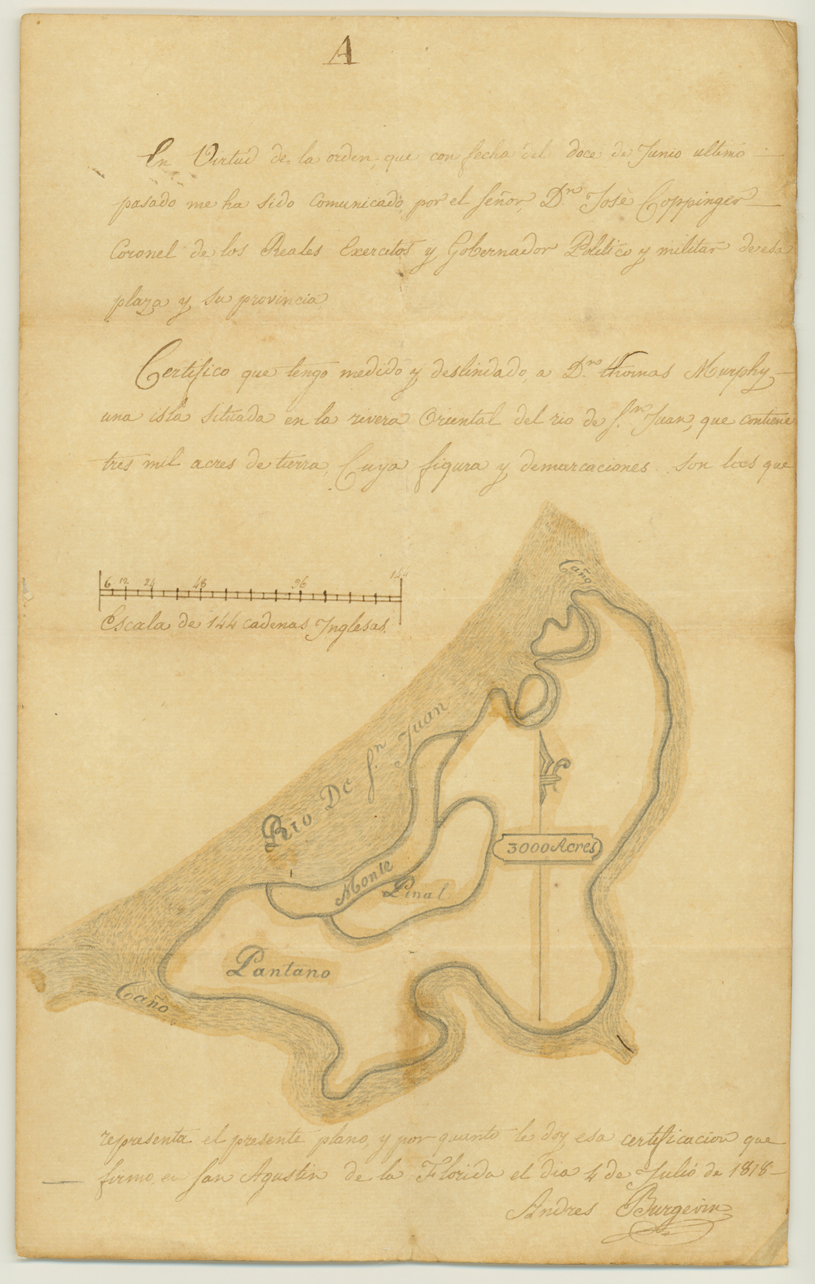 A
En Virtud de la orden, que con fecha del doce de Junio ultimo
pasado me ha sido comunicado, por el Señor, Dn. José Coppinger
Coronel de los Reales Exercitos y Gobernador Politico y militar de esta
plaza y su provincia
Certifico que tengo medido y deslindado, a Dn. thomas Murphy
una isla situada en la rivera Oriental del rio de Sn. Juan, que contiene
tres mil acres de tierra, Cuya figura y demarcaciones son las que
Caño
6 12 24 48 96 144
Escala de 144 cadenas Inglesas
Rio De Sn Juan
3000 Acres
Monte
Pinal
Pantano
Caño
representa el presente plano, y por quanto le doy esa certificacion que
firmo en San Agustin de la Florida el dia 4 de Julio de 1818
Andres Burgevin